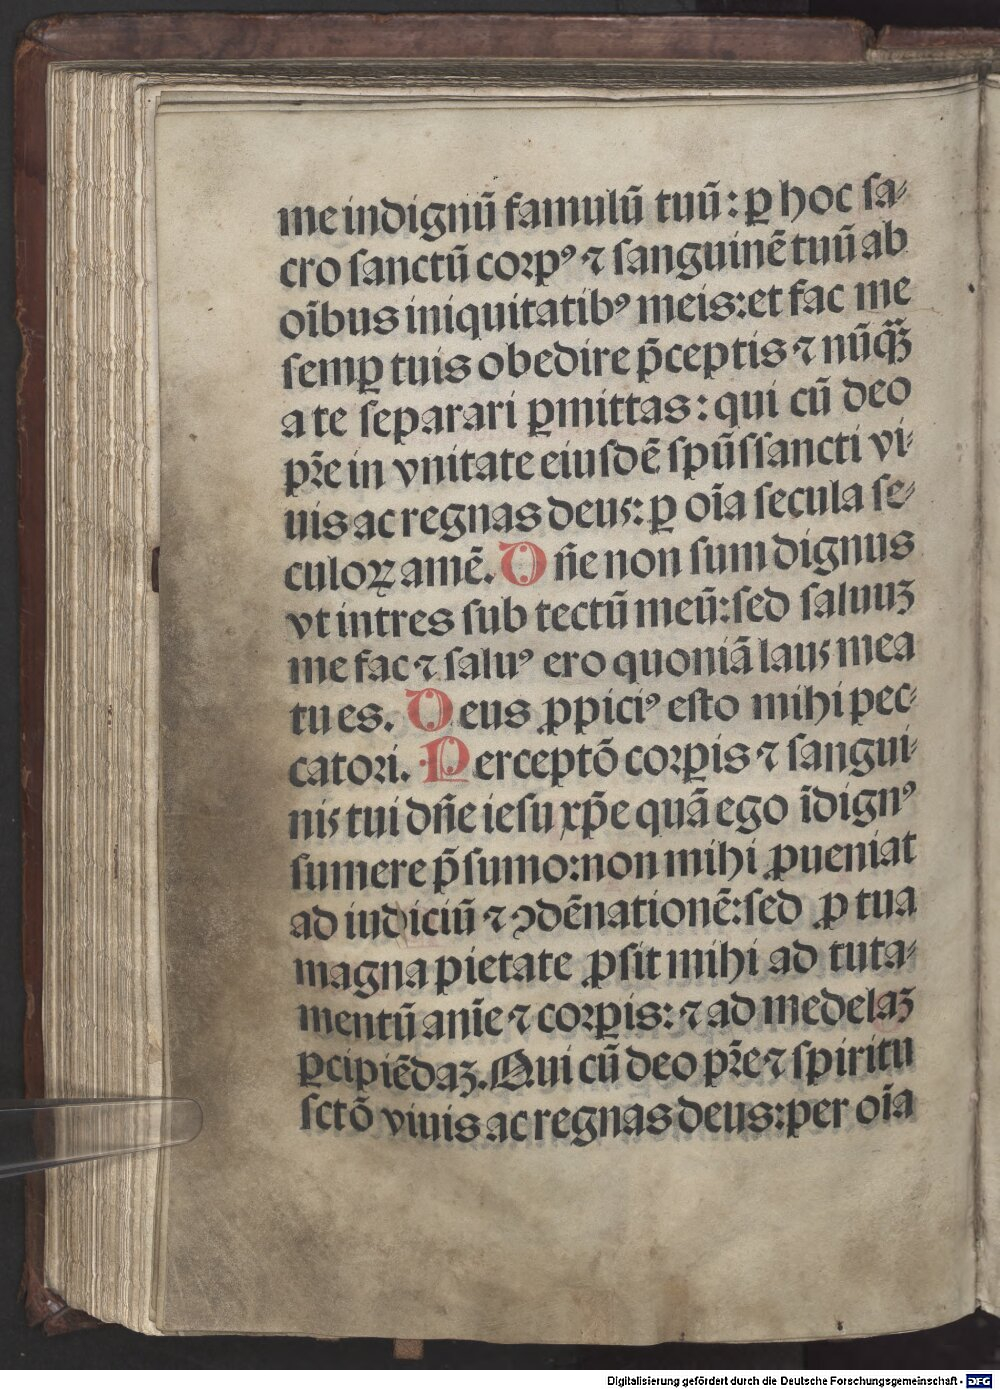 me indignū famulū tuū: ꝑ hoc ſa-
cro ſanctū corpꝰ ⁊ ſanguinē tuū ab
oībus iniquitatibꝰ meis: et fac me
ſemꝑ tuis obedire p̄ceptis ⁊ nūq̄ꝫ
a te ſeparari ꝑmittas: qui cū deo
pr̄e in vnitate eiuſdē ſpūſſancti vi-
uis ac regnas deus: ꝑ oīa ſecula ſe-
culoꝝ amē. Dn̄e non ſum dignus
vt intres ſub tectū meū: ſed ſaluuꝫ
me fac ⁊ ſaluꝰ ero quoniā laus mea
tu es. Deus ꝓpiciꝰ eſto mihi pec-
catori. Perceptō corꝑis ⁊ ſangui-
nis tui dn̄e ieſu xp̄e quā ego īdignꝰ
ſumere p̄ſumo: non mihi ꝓueniat
ad iudiciū ⁊ ↄdēnationē: ſed ꝓ tua
magna pietate ꝓſit mihi ad tuta-
mentū anīe ⁊ corꝑis: ⁊ ad medelaꝫ
ꝑcipiēdaꝫ. Qui cū deo pr̄e ⁊ ſpiritu
ſctō viuis ac regnas deus: per oīa
Digitalisierung gefördert durch die Deutsche Forschungsgemeinschaft - DFG